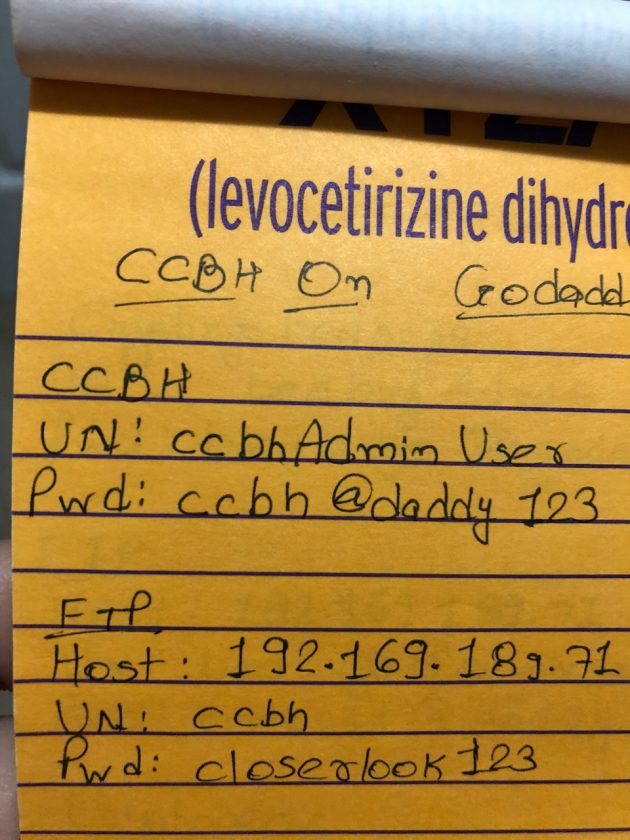 (levocetirizine dihydr
CCBH On Godadd
CCBH
UN: ccbhAdmin User
Pwd: ccbh @daddy 123
FTP
Host: 192.169.189.71
UN: ccbh
Pwd: closerlook 123